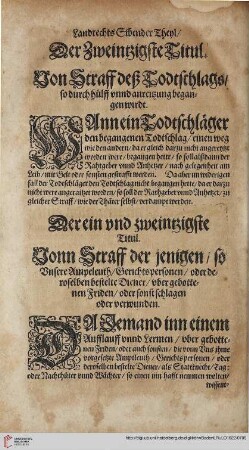 Landrechts Sibender Theyl/
Der Zweintzigste Titul.
Von Straff deß Todtschlags/
so durch hülff vnnd anreitzung began-
gen wirdt.
WAnn ein Todtschläger
den begangenen Todtschlag / einen weg
wie den andern / da er gleich darzu nicht angereytzt
worden were / begangen hette / so soll alsdann der
Rahtgeber vnnd Anhetzer / nach gelegenheit am
Leib / mit Gelt oder sonsten gestrafft werden. Da aber im widerigen
fall der Todtschläger den Todtschlag nicht begangen hette / da er darzu
nicht were angereitzt worden / so soll der Rahtgeber vnnd Anhetzer / zu
gleicher Straff / wie der Thäter selbst / verdampt werden.
Der ein vnd zweintzigste
Titul.
Vonn Straff der jenigen / so
Vnsere Amptleuth / Gerichts personen / oder de-
roselben bestelte Diener / vber gebotte-
nen Friden / oder sonst schlagen
oder verwunden.
DA Jemand inn einem
Aufflauff vnnd Lermen / vber gebotte-
nen Friden / oder auch sonsten / die vonn Vns jhme
vorgesetzte Amptleuth / Gerichts personen / oder
derselben bestelte Diener / als Stattknecht / Tag-
oder Nachthüter vnd Wächter / so einen inn hafft nemmen wolten /
wissent-